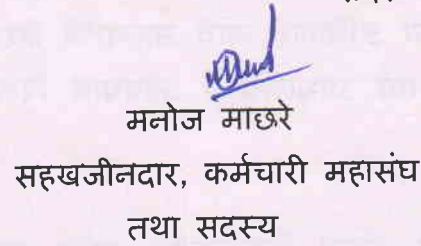 मनोज माछरे
सहखजीनदार, कर्मचारी महासंघ
तथा सदस्य